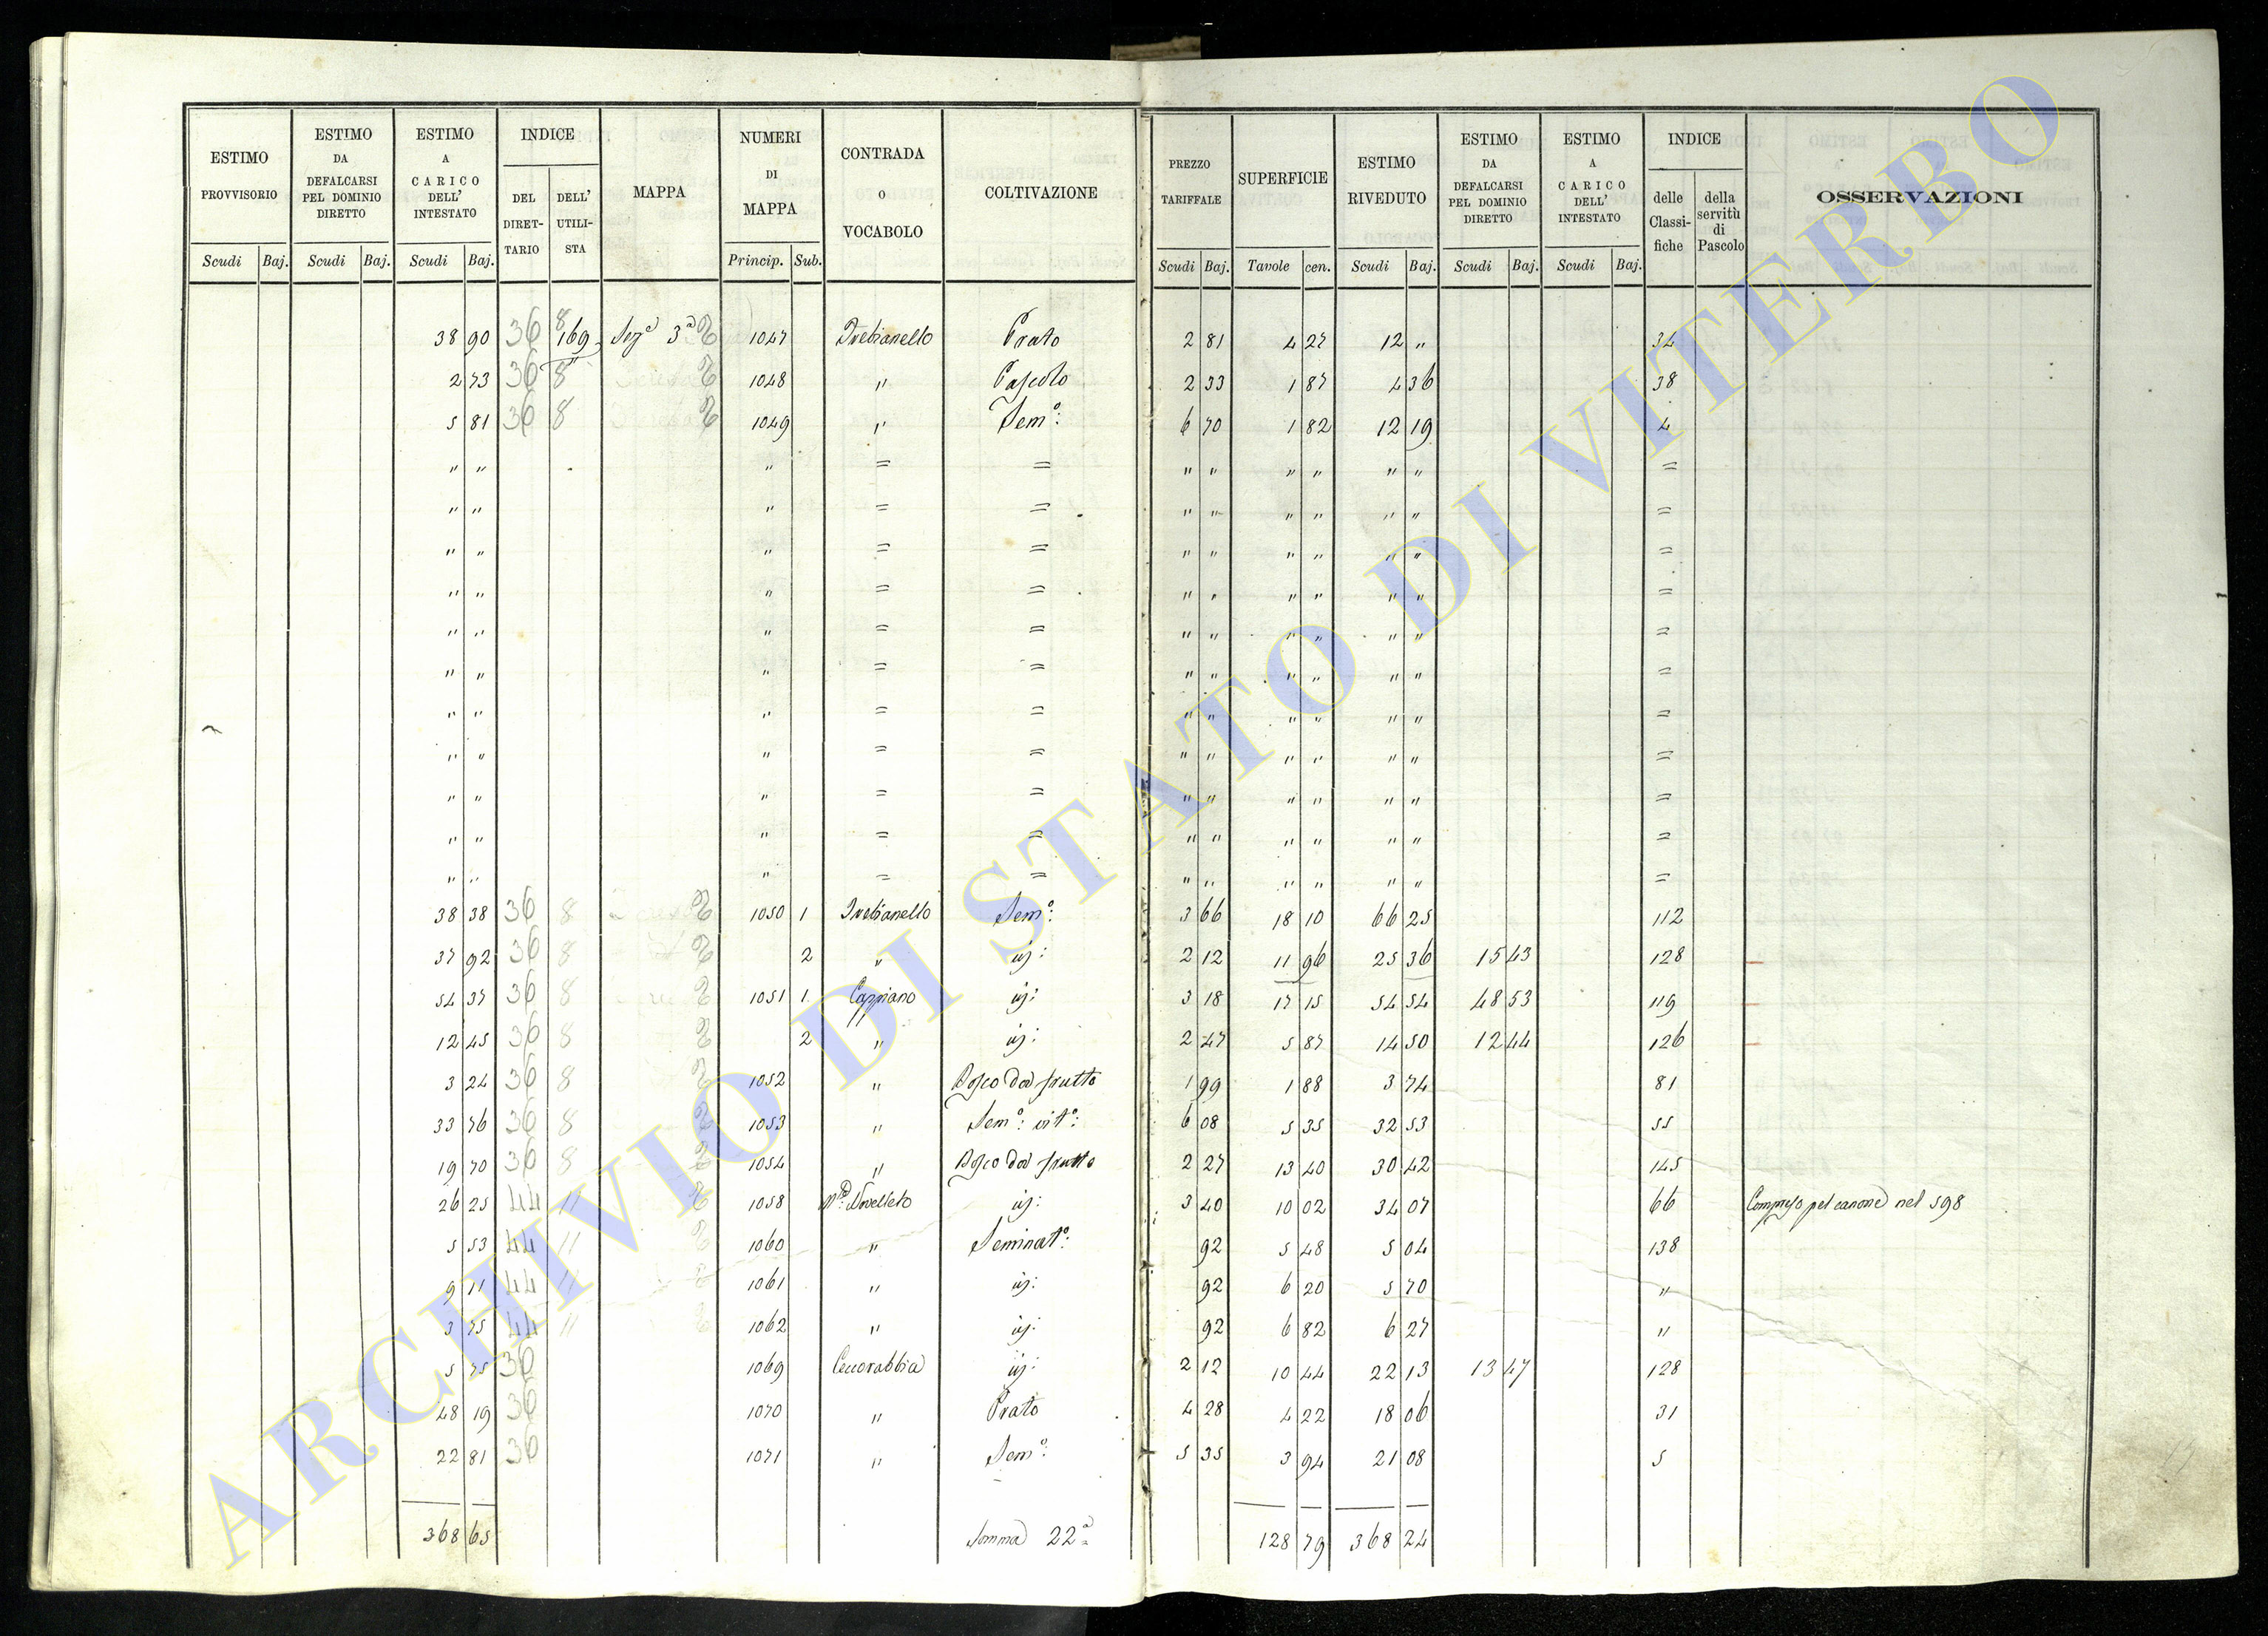 ESTIMO PROVVISORIO | ESTIMO DA DEFALCARSI PEL DOMINIO DIRETTO | ESTIMO A CARICO DELL' INTESTATO | INDICE DEL DIRETTARIO | DELL' UTILISTA | MAPPA | NUMERI DI MAPPA | CONTRADA O VOCABOLO | COLTIVAZIONE | PREZZO TARIFFALE | SUPERFICIE | ESTIMO RIVEDUTO | ESTIMO DA DEFALCARSI PEL DOMINIO DIRETTO | ESTIMO A CARICO DELL' INTESTATO | INDICE delle Classifiche | della servitù di Pascolo | OSSERVAZIONI
Scudi Baj. Scudi Baj. Scudi Baj. Princip. Sub. Scudi Baj. Tavole cen. Scudi Baj. Scudi Baj. Scudi Baj.
38 90 36 8 169 3ª 1047 Prato 2 81 4 27 12 " 34
2 73 36 8 1048 " Pascolo 2 33 1 87 4 36 38
5 81 36 8 1049 " Semº: 6 70 1 82 12 19 4
" " " = = " " " " " " =
" " " = = " " " " " " =
" " " = = " " " " " " =
" " " = = " " " " " " =
" " " = = " " " " " " =
" " " = = " " " " " " =
" " " = = " " " " " " =
" " " = = " " " " " " =
" " " = = " " " " " " =
" " " = = " " " " " " =
" " " = = " " " " " " =
38 38 36 8 1050 1 Semº: 3 66 18 10 66 25 112
37 92 36 8 2 " id: 2 12 11 96 25 36 15 43 128
54 37 36 8 1051 1 Cappiano id: 3 18 17 15 54 54 48 53 119
12 45 36 8 2 " id: 2 47 5 87 14 50 12 44 126
3 24 36 8 1052 " Bosco da frutto 1 99 1 88 3 74 81
33 76 36 8 1053 " Semº: vitº: 6 08 5 35 32 53 55
19 70 36 8 1054 " Bosco da frutto 2 27 13 40 30 42 145
26 25 44 11 1058 Novelleto id: 3 40 10 02 34 07 66 Compreso pel canone nel 598
5 53 44 11 1060 " Seminatº: 92 5 48 5 04 138
9 11 44 11 1061 " id: 92 6 20 5 70 "
3 75 44 11 1062 " id: 92 6 82 6 27 "
5 75 36 1069 Ceccorabbia id: 2 12 10 44 22 13 13 47 128
48 19 36 1070 " Prato 4 28 4 22 18 06 31
22 81 36 1071 " Semº: 5 35 3 94 21 08 5
368 65 Somma 22ª 128 79 368 24
ARCHIVIO DI STATO DI VITERBO